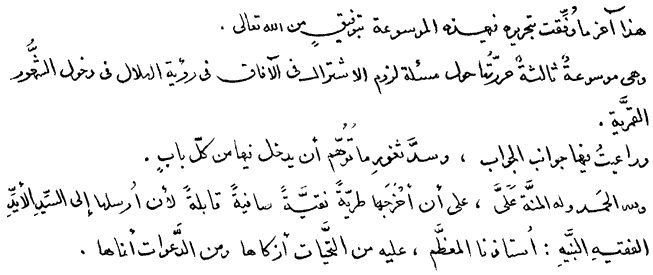 هذا آخر ما وُفِّقت بتحريره في هذه الموسوعة بتوفيقٍ من الله تعالى .
وهي موسوعةٌ ثالثةٌ حررتُها حول مسئلة لزوم الاشتراك في الآفاق في رؤية الهلال في دخول الشُّهور
القمريَّة .
وراعيتُ فيها جوانب الجواب ، وسدَّ ثغورِ ما تُوُهِّم أن يدخل فيها من كلّ بابٍ .
ولله الحمد وله المنَّة عَلَيَّ ، على أن أخرَجَها طريَّةً نقيَّةً سانيةً قابلةً لأن أُرسلها إلى السيِّدِ الأيِّدِ
الفقيهِ النَّبيهِ : أستاذنا المعظَّم ، عليه من التحيَّات أزكاها ومن الدَّعوات أنماها .